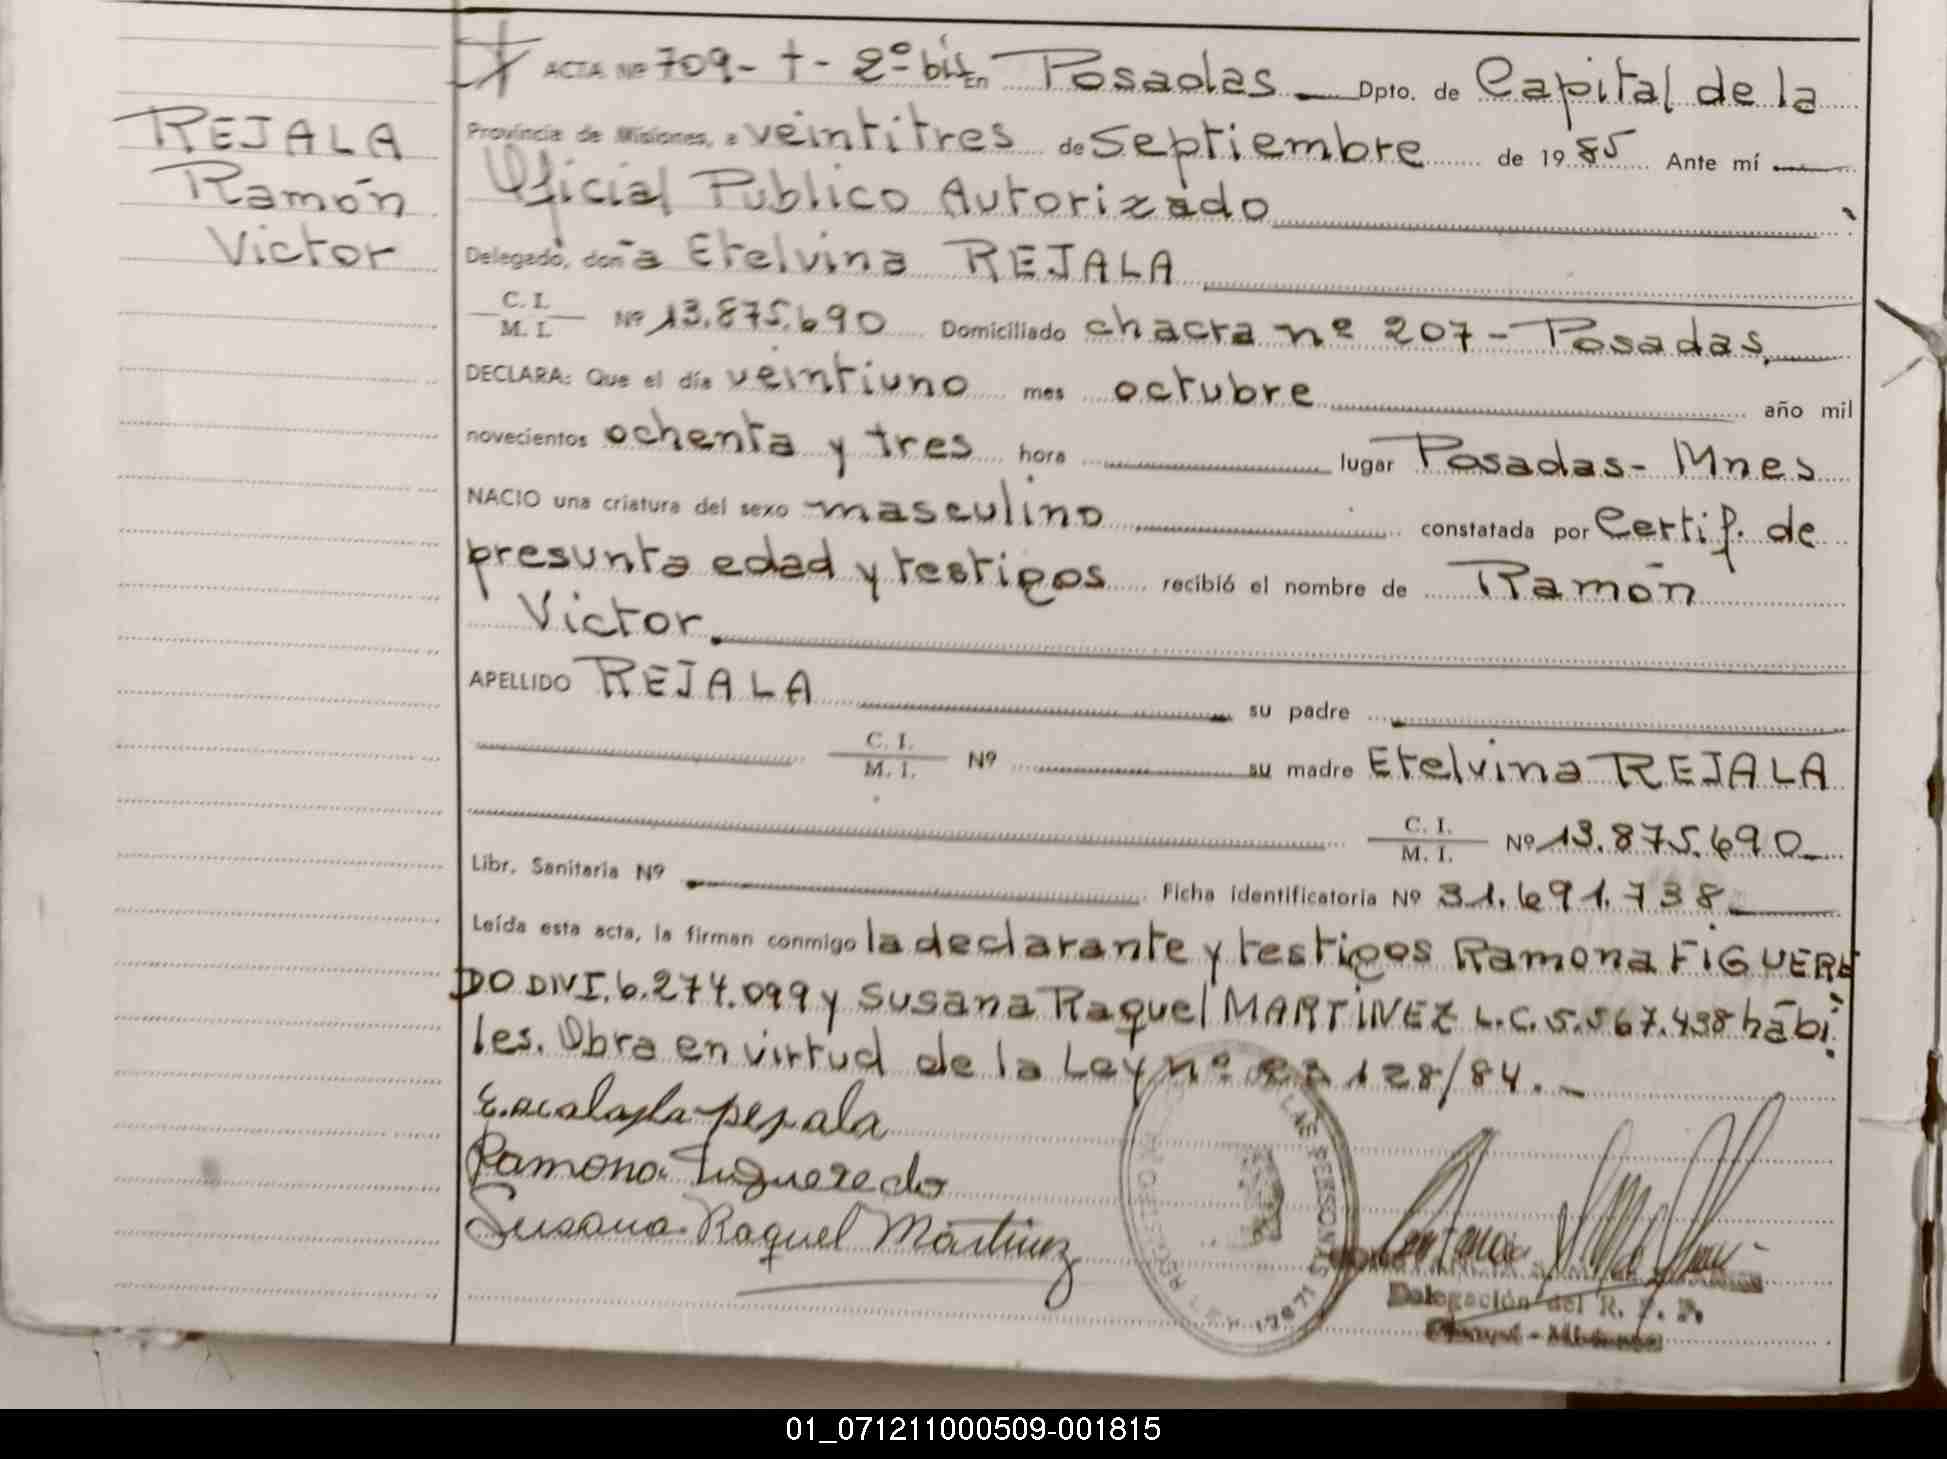 REJALA
Ramón
Victor
ACTA Nº 709- t - 2º bis En Posadas Dpto. de Capital de la
Provincia de Misiones, a veintitres de Septiembre de 19 85 Ante mí
Oficial Publico Autorizado
Delegado, doña Etelvina REJALA
C. I.
M. I. Nº 13.875.690 Domiciliado chacra nº 207 - Posadas.
DECLARA: Que el día veintiuno mes octubre año mil
novecientos ochenta y tres hora lugar Posadas - Mnes
NACIO una criatura del sexo masculino constatada por Certif. de
presunta edad y testigos recibió el nombre de Ramón
Victor
APELLIDO REJALA su padre
C. I.
M. I. Nº su madre Etelvina REJALA
C. I.
M. I. Nº 13.875.690
Libr. Sanitaria Nº Ficha identificatoria Nº 31.691.738
Leída esta acta, la firman conmigo la declarante y testigos Ramona FIGUERE
DO DNI. 6.274.099 y Susana Raquel MARTINEZ L.C. 5.567.438 hábi
les. Obra en virtud de la Ley nº 128/84.
Ramona Figueredo
Susana Raquel Martinez
LAS PERSONAS
LEY 17671
Delegación del R. P. P.
01_071211000509-001815